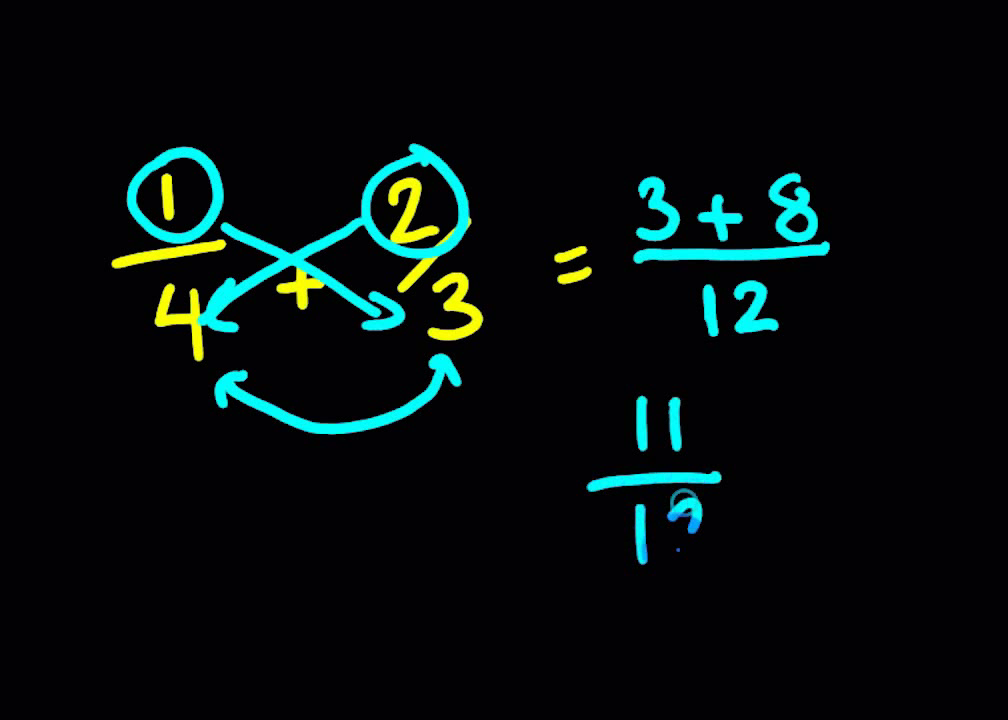 1/4 + 2/3 = 3+8/12
11
1